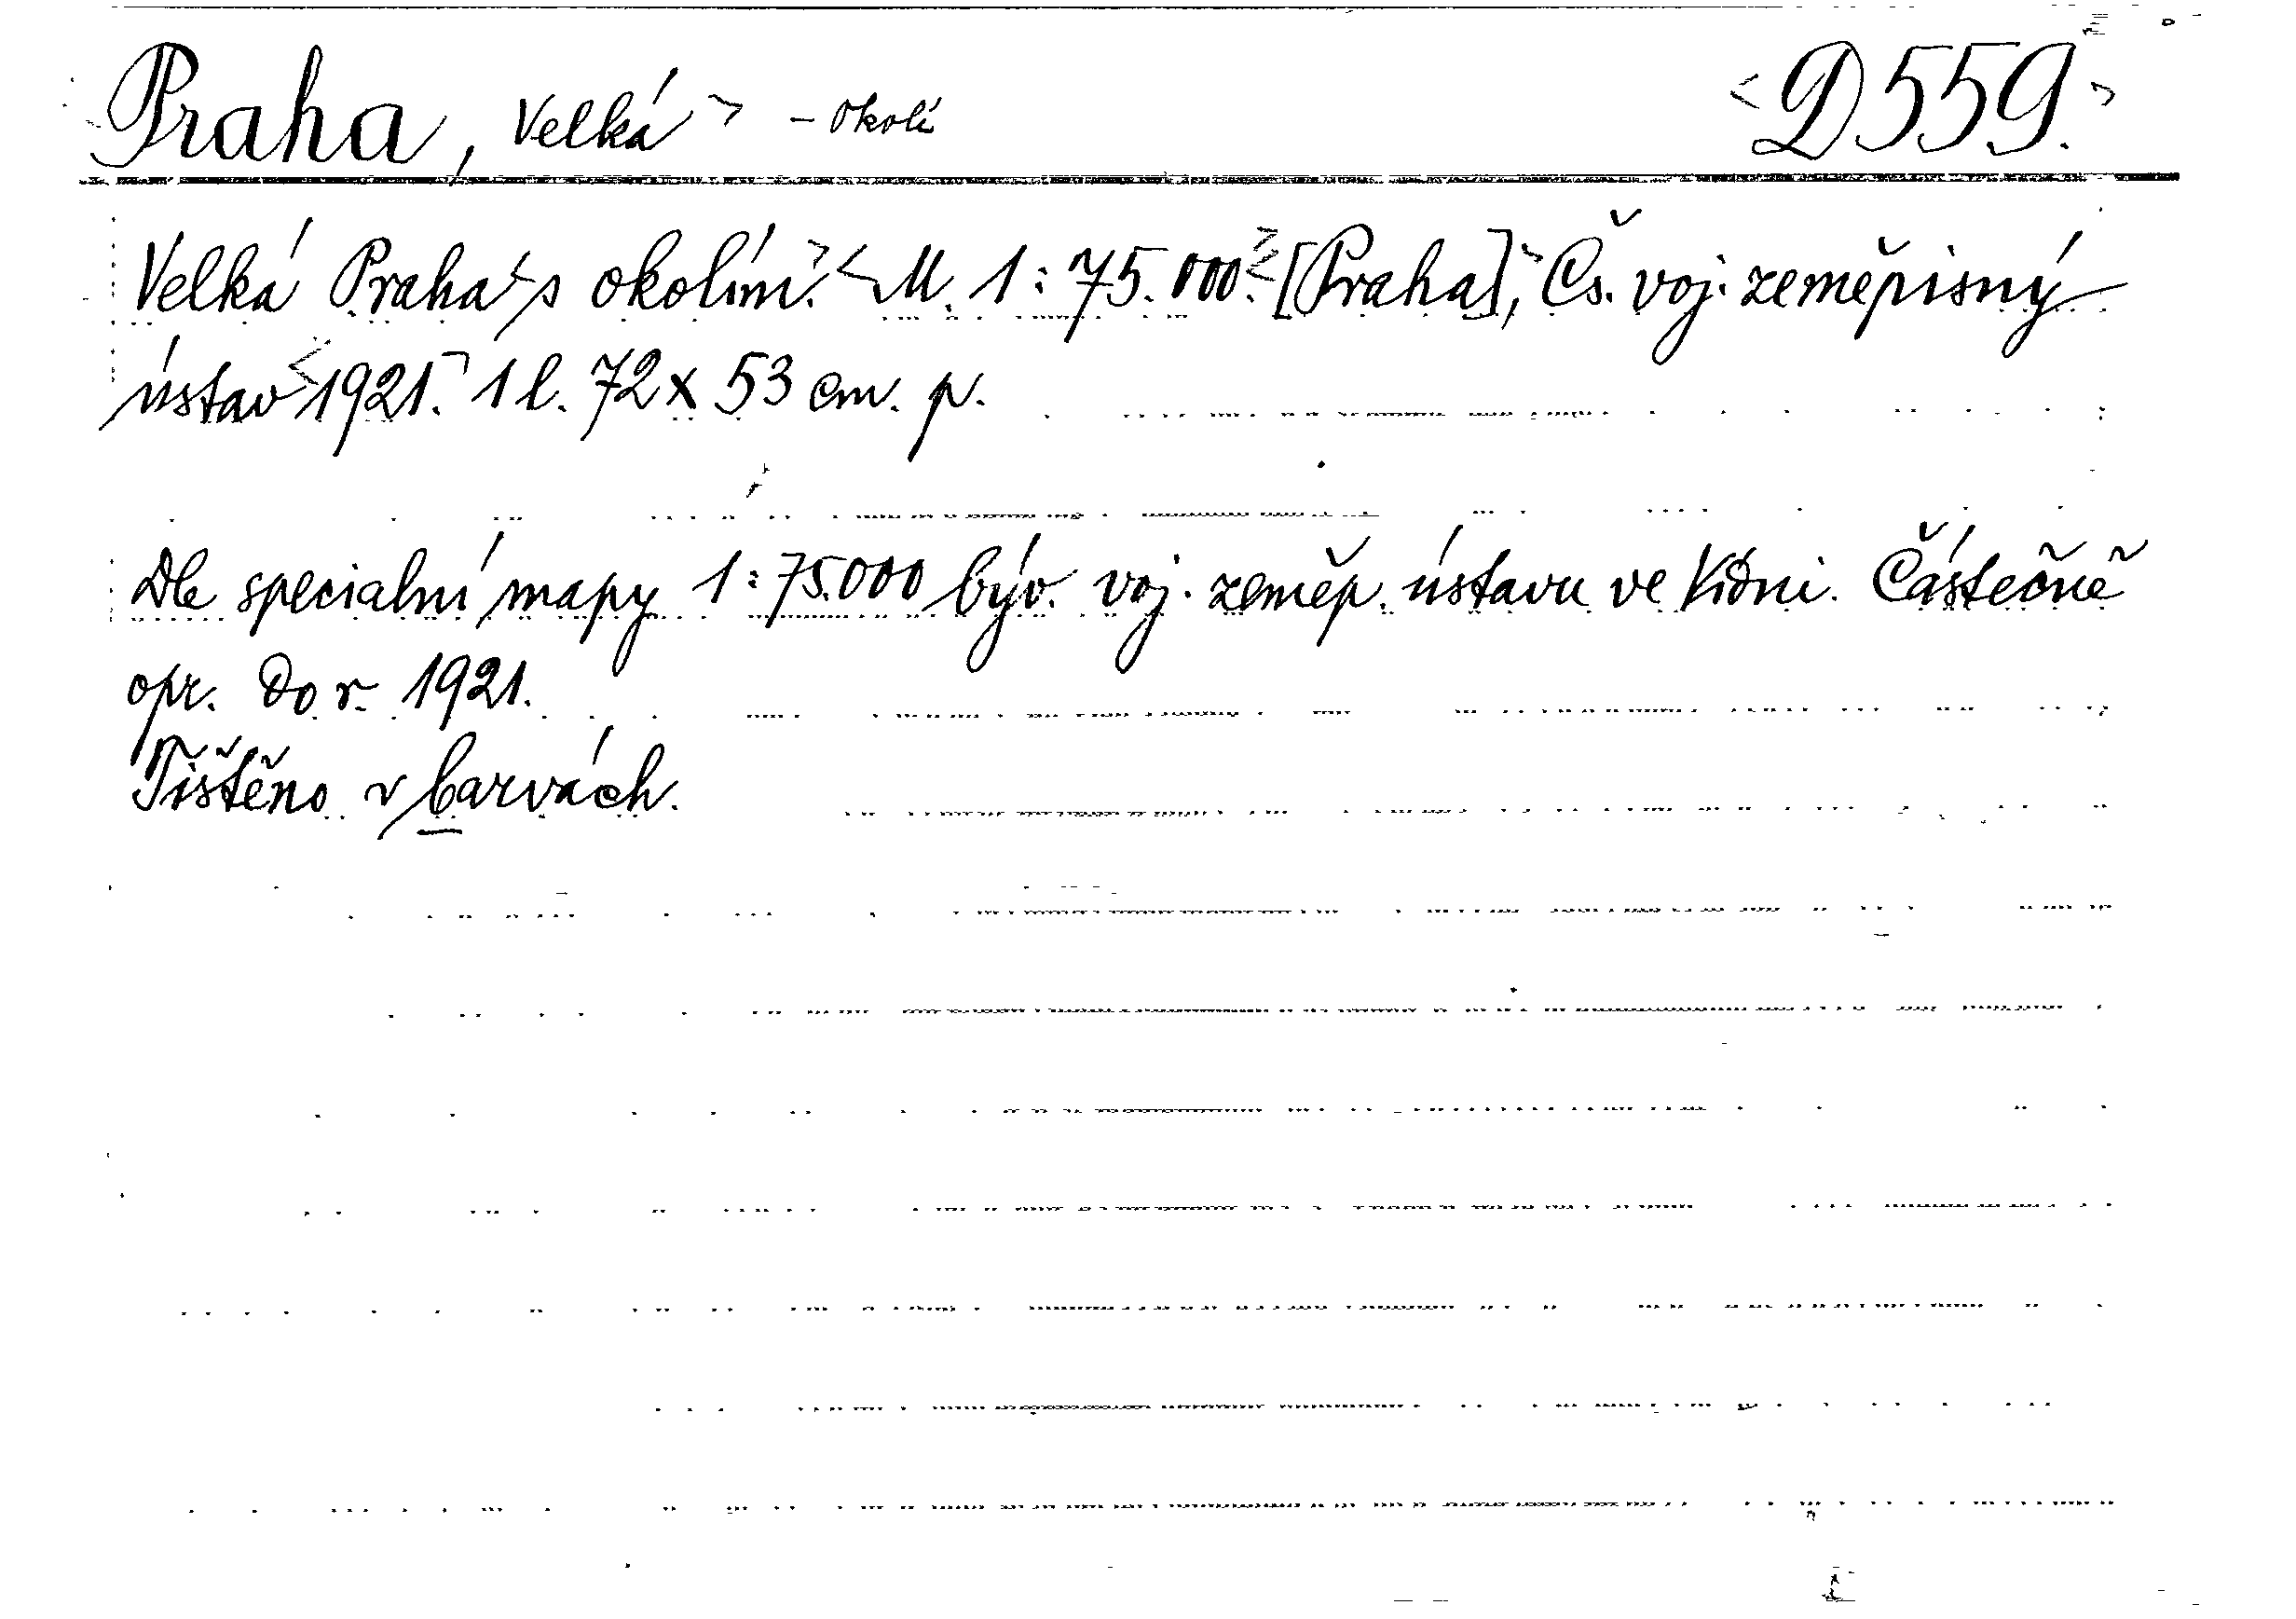 Praha, Velká - okolí D 559.
Velká Praha s okolím. M. 1:75.000. [Praha], Čs. voj. zeměpisný
ústav 1921. 1 l. 72 x 53 cm. p.
Dle specialní mapy 1:75.000 býv. voj. zeměp. ústavu ve Vídni. Částečně
opr. do r. 1921.
Tištěno v barvách.